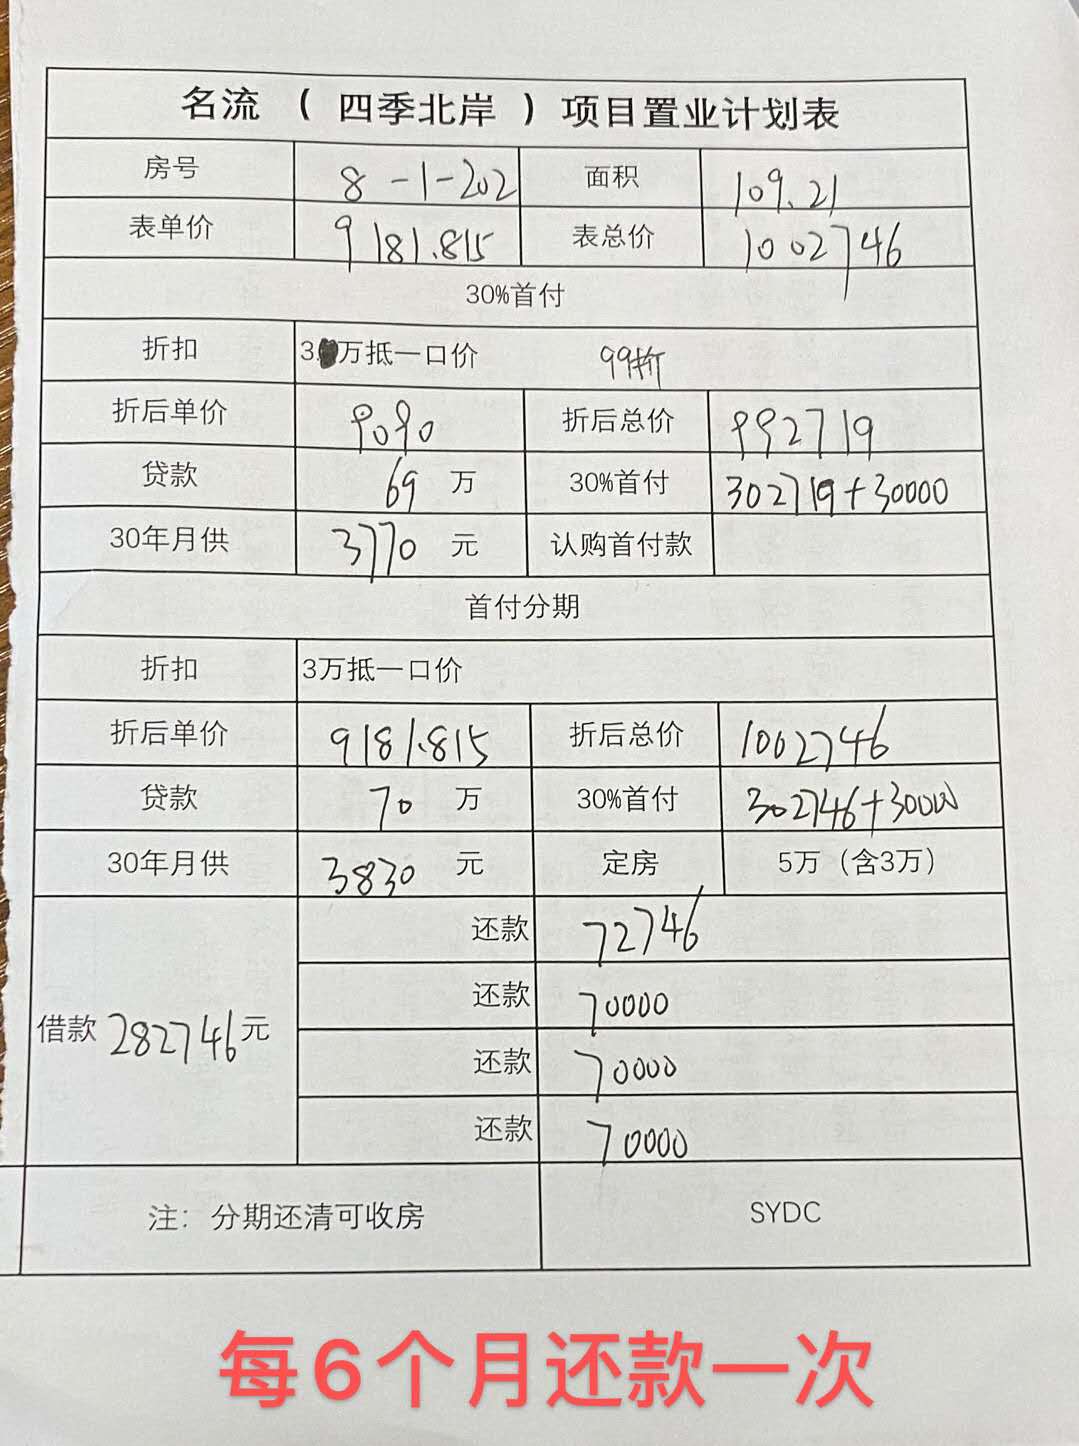 名流 （ 四季北岸 ）项目置业计划表
房号 8-1-202 面积 109.21
表单价 9181.815 表总价 1002746
30%首付
折扣 3万抵一口价 99折
折后单价 9090 折后总价 992719
贷款 69 万 30%首付 302719+30000
30年月供 3770 元 认购首付款
首付分期
折扣 3万抵一口价
折后单价 9181.815 折后总价 1002746
贷款 70 万 30%首付 302746+30000
30年月供 3830 元 定房 5万（含3万）
借款 282746元
还款 72746
还款 70000
还款 70000
还款 70000
注：分期还清可收房 SYDC
每6个月还款一次